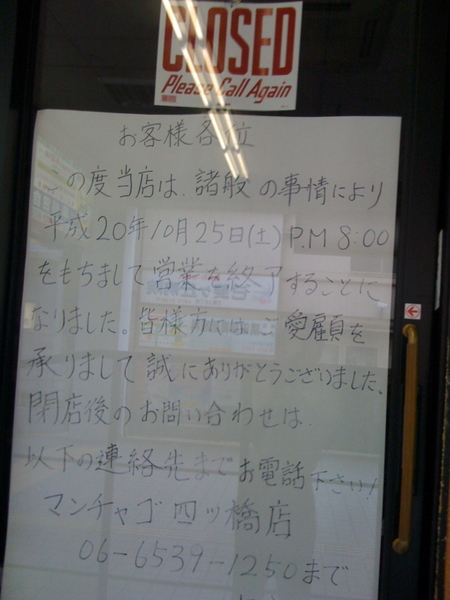 CLOSED
Please Call Again
お客様各位
この度当店は、諸般の事情により
平成20年10月25日(土)P.M 8:00
をもちまして営業を終了することに
なりました。皆様方にはご愛顧を
承りまして誠にありがとうございました。
閉店後のお問い合わせは、
以下の連絡先までお電話下さい!
マンチャゴ四ッ橋店
06-6539-1250まで